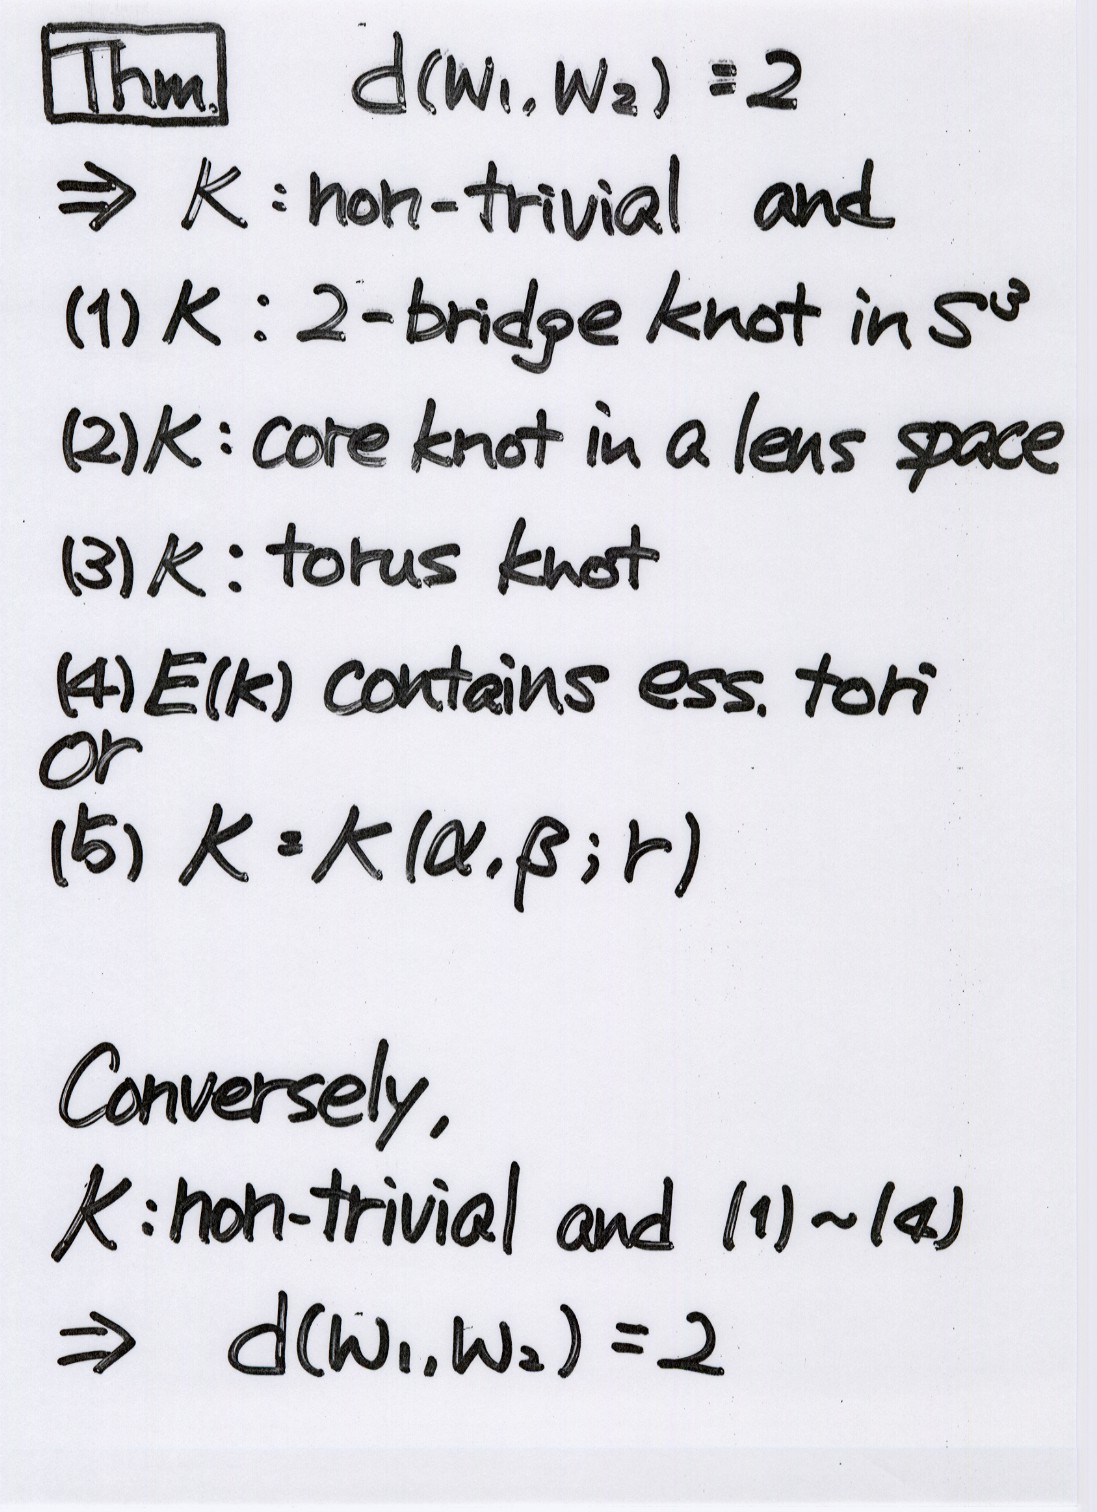 Thm. d(W₁, W₂) = 2
⇒ K : non-trivial and
(1) K : 2-bridge knot in S³
(2) K : core knot in a lens space
(3) K : torus knot
(4) E(K) contains ess. tori
or
(5) K = K(α, β ; r)
Conversely,
K : non-trivial and (1) ~ (4)
⇒ d(W₁, W₂) = 2